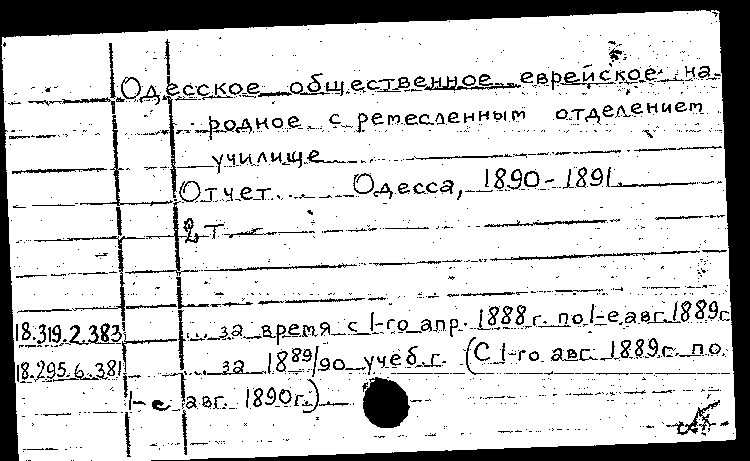 Одесское общественное еврейское на-
родное с ремесленным отделением
училище
Отчет... Одесса, 1890-1891.
2 т.
18.319.2.383 ... за время с 1-го апр. 1888 г. по 1-е авг. 1889 г.
18.295.6.381 ... за 1889/90 учеб. г. (С 1-го авг. 1889 г. по
1-е авг. 1890 г.)